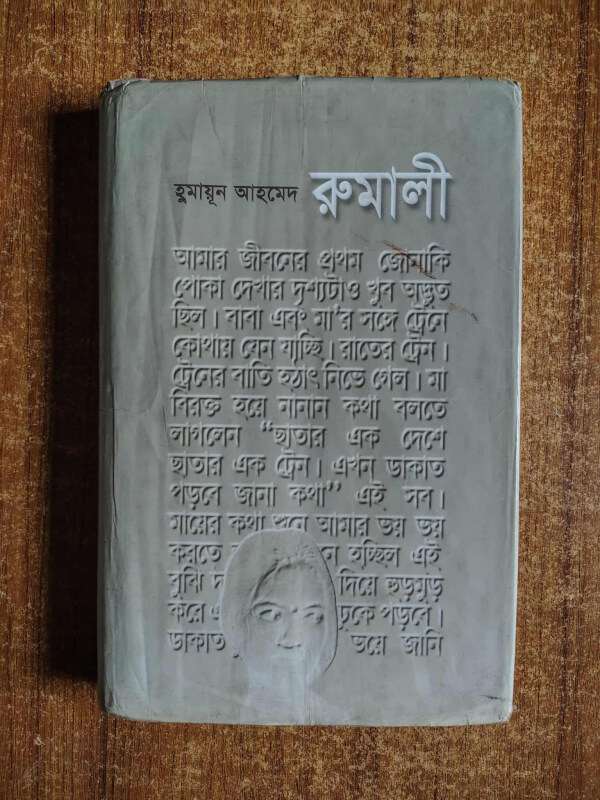 হুমায়ূন আহমেদ রুমালী
আমার জীবনের প্রথম জোনাকি
পোকা দেখার দৃশ্যটাও খুব অদ্ভুত
ছিল। বাবা এবং মা'র সঙ্গে ট্রেনে
কোথায় যেন যাচ্ছি। রাতের ট্রেন।
ট্রেনের বাতি হঠাৎ নিভে গেল। মা
বিরক্ত হয়ে নানান কথা বলতে
লাগলেন “ছাতার এক দেশে
ছাতার এক ট্রেন। এখন ডাকাত
পড়বে জানা কথা” এই সব।
মায়ের কথা শুনে আমার ভয় ভয়
করতে হচ্ছিল এই
বুঝি দিয়ে হুড়মুড়
করে ঢুকে পড়বে।
ডাকাত ভয়ে জানি